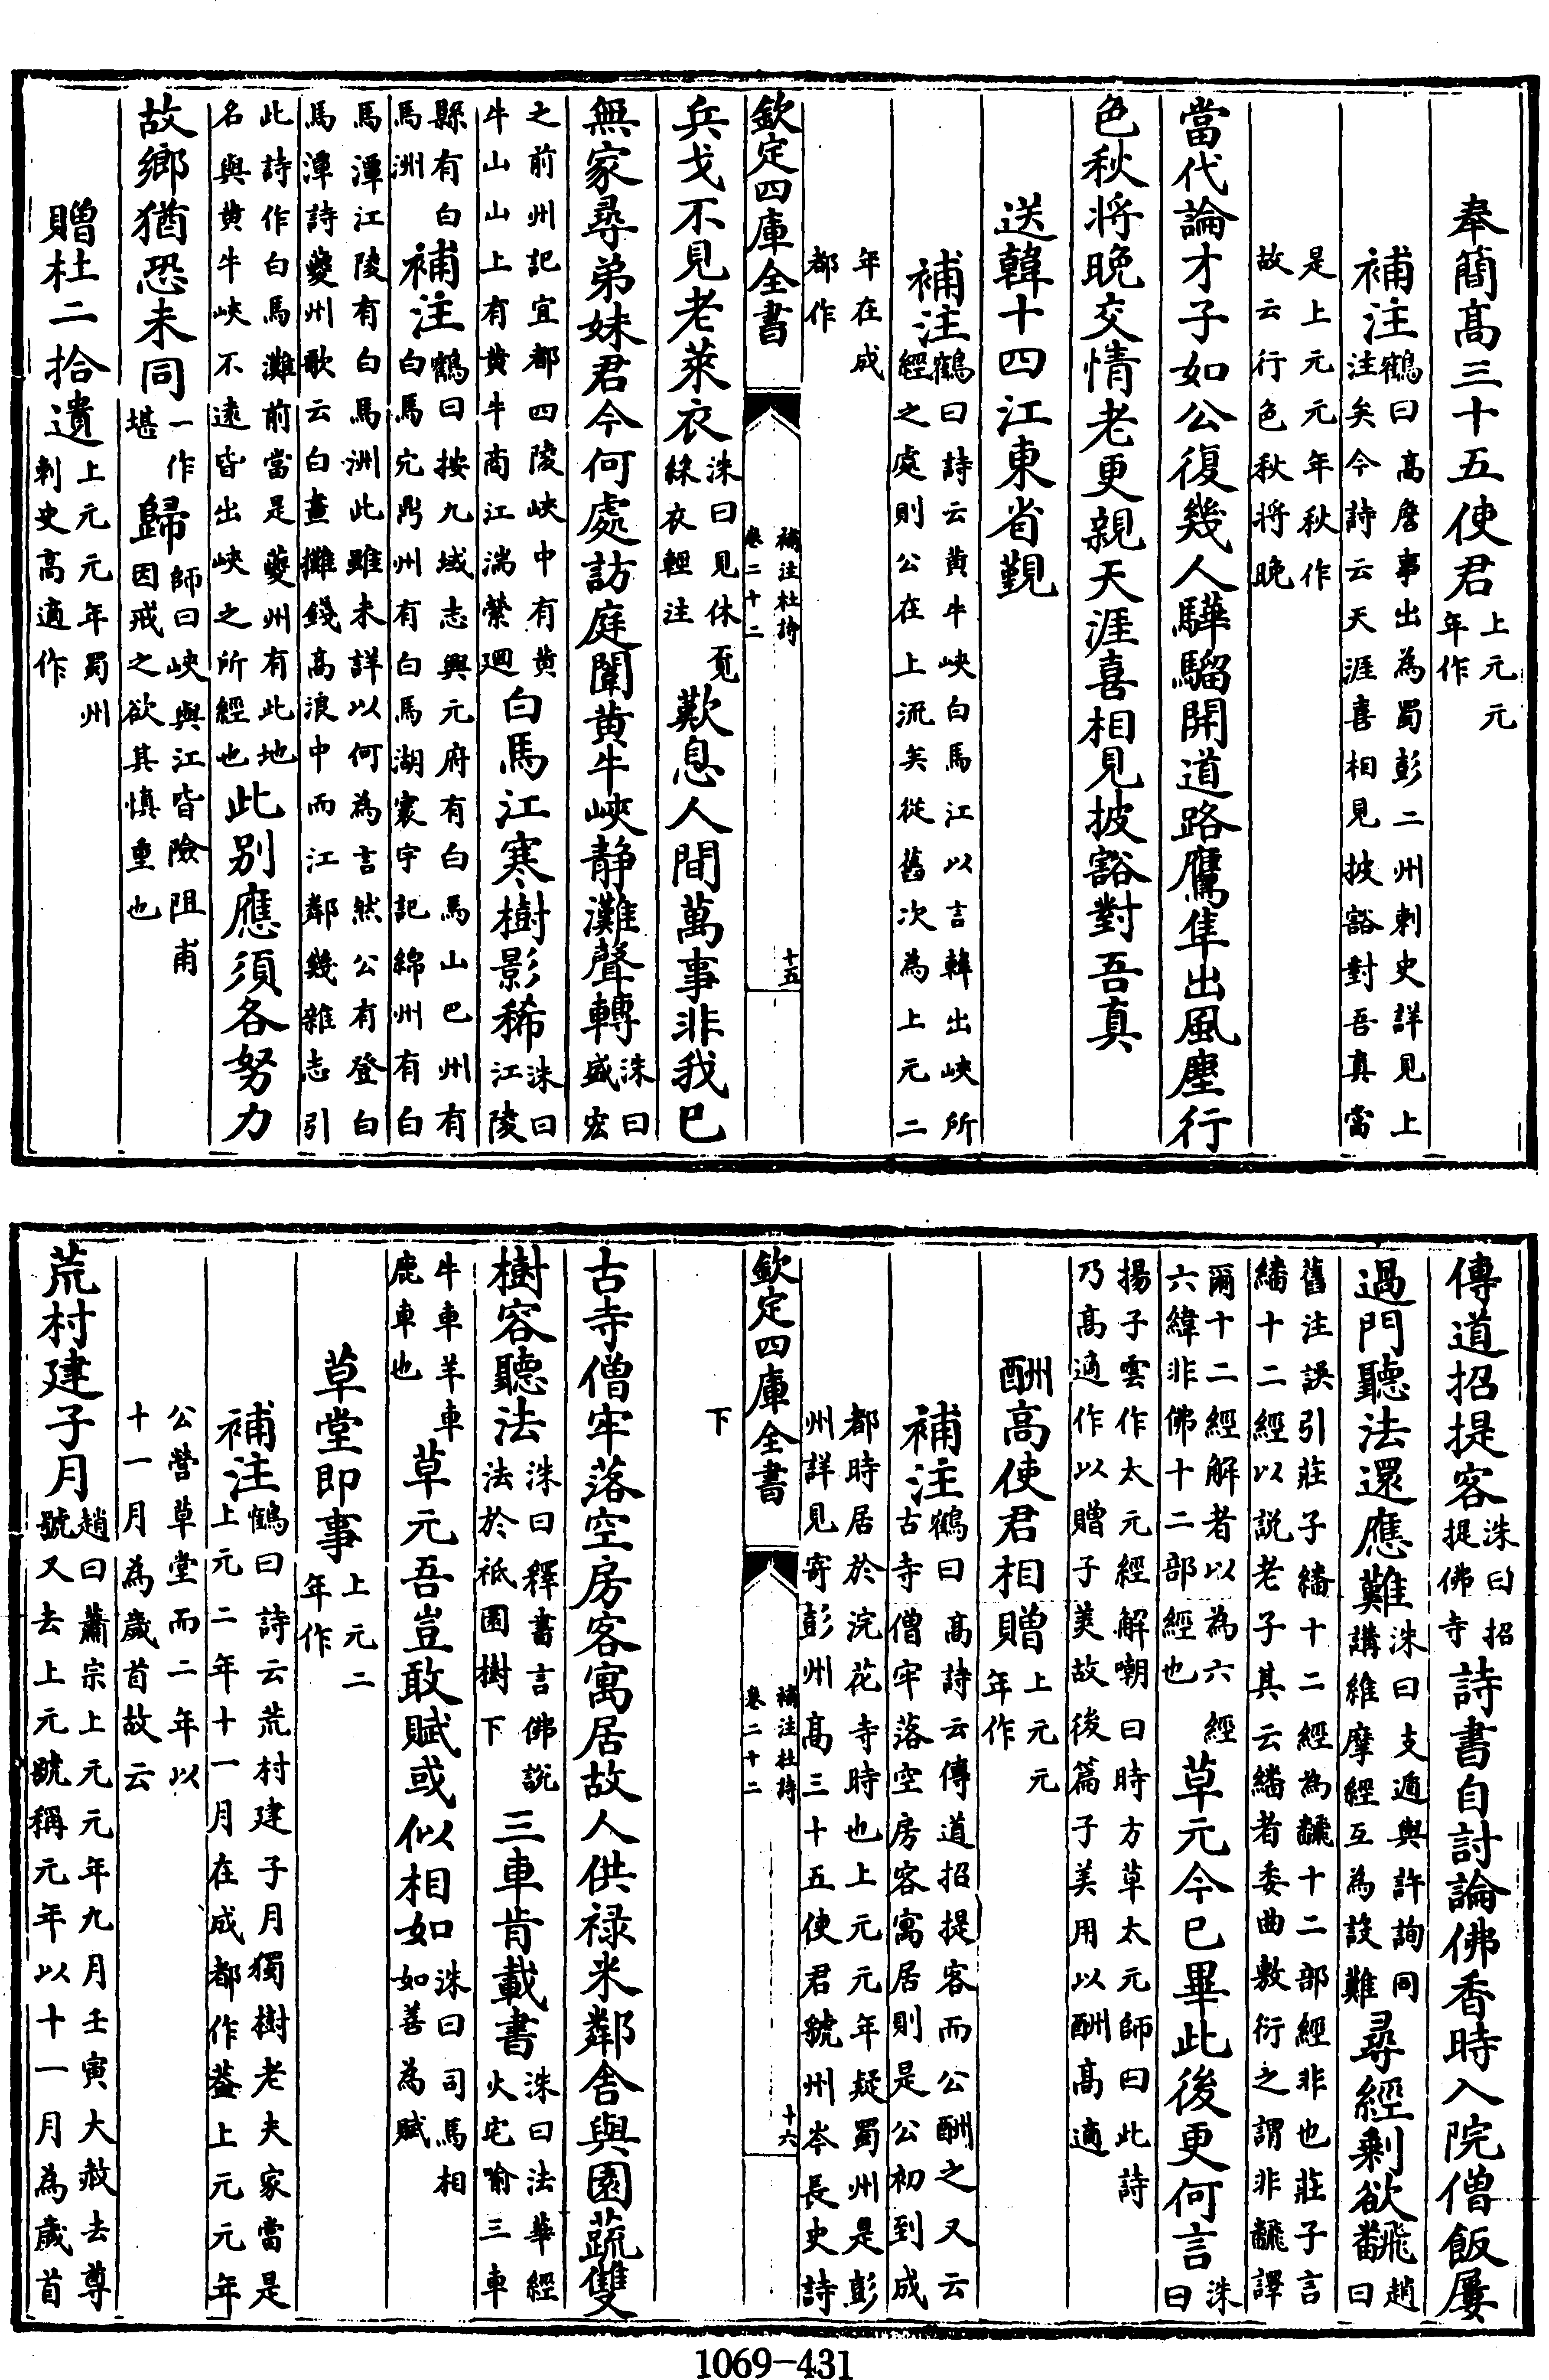 奉簡髙三十五使君上元元年作
補注鶴曰高詹事出為蜀彭二州刺史詳見上注矣今詩云天涯喜相見披豁對吾真當
是上元元年秋作故云行色秋將晚
當代論才子如公復幾人驊騮開道路鷹隼出風塵行
色秋將晚交情老更親天涯喜相見披豁對吾真
送韓十四江東省覲
補注鶴曰詩云黄牛峽白馬江以言韓出峽所經之處則公在上流矣從舊次為上元二
年在成都作
欽定四庫全書 補注杜詩 卷二十二 十五
兵戈不見老萊衣洙曰見休覔綵衣輕注歎息人間萬事非我已
無家尋弟妹君今何處訪庭闈黄牛峽静灘聲轉洙曰盛宏
之前州記宜都四陵峽中有黄牛山山上有黄牛商江湍縈廻白馬江寒樹影稀洙曰江陵
縣有白馬洲補注鶴曰按九域志興元府有白馬山巴州有白馬穴鼎州有白馬湖寰宇記綿州有白
馬潭江陵有白馬洲此雖未詳以何為言然公有登白馬潭詩夔州歌云白晝攤錢髙浪中而江鄰幾雜志引
此詩作白馬灘前當是夔州有此地名與黄牛峽不遠皆出峽之所經也此别應須各努力
故鄉猶恐未同一作堪歸師曰峽與江皆險阻甫因戒之欲其慎重也
贈杜二拾遺上元元年蜀州刺史高適作
傳道招提客洙曰招提佛寺詩書自討論佛香時入院僧飯屢
過門聽法還應難洙曰支遁與許詢同講維摩經互為設難尋經剩欲飜趙曰
舊注誤引莊子繙十二經為飜十二部經非也莊子言繙十二經以説老子其云繙者委曲敷衍之謂非飜譯
爾十二經解者以為六經六緯非佛十二部經也草元今已畢此後更何言洙曰
揚子雲作太元經解嘲曰時方草太元師曰此詩乃高適作以贈子美故後篇子美用以酬高適
酬高使君相贈上元元年作
補注鶴曰髙詩云傳道招提客而公酬之又云古寺僧牢落空房客寓居則是公初到成
都時居於浣花寺時也上元元年疑蜀州是彭州詳見寄彭州髙三十五使君虢州岑長史詩
下
欽定四庫全書 補注杜詩 卷二十二 十六
古寺僧牢落空房客寓居故人供禄米鄰舍與園蔬雙
樹容聽法洙曰釋書言佛説法於祗園樹下三車肯載書洙曰法華經火宅喻三車
牛車羊車鹿車也草元吾豈敢賦或似相如洙曰司馬相如善為賦
草堂即事上元二年作
補注鶴曰詩云荒村建子月獨樹老夫家當是上元二年十一月在成都作葢上元元年
公營草堂而二年以十一月為歲首故云
荒村建子月趙曰蕭宗上元元年九月壬寅大赦去尊號又去上元號稱元年以十一月為歲首
1069-431